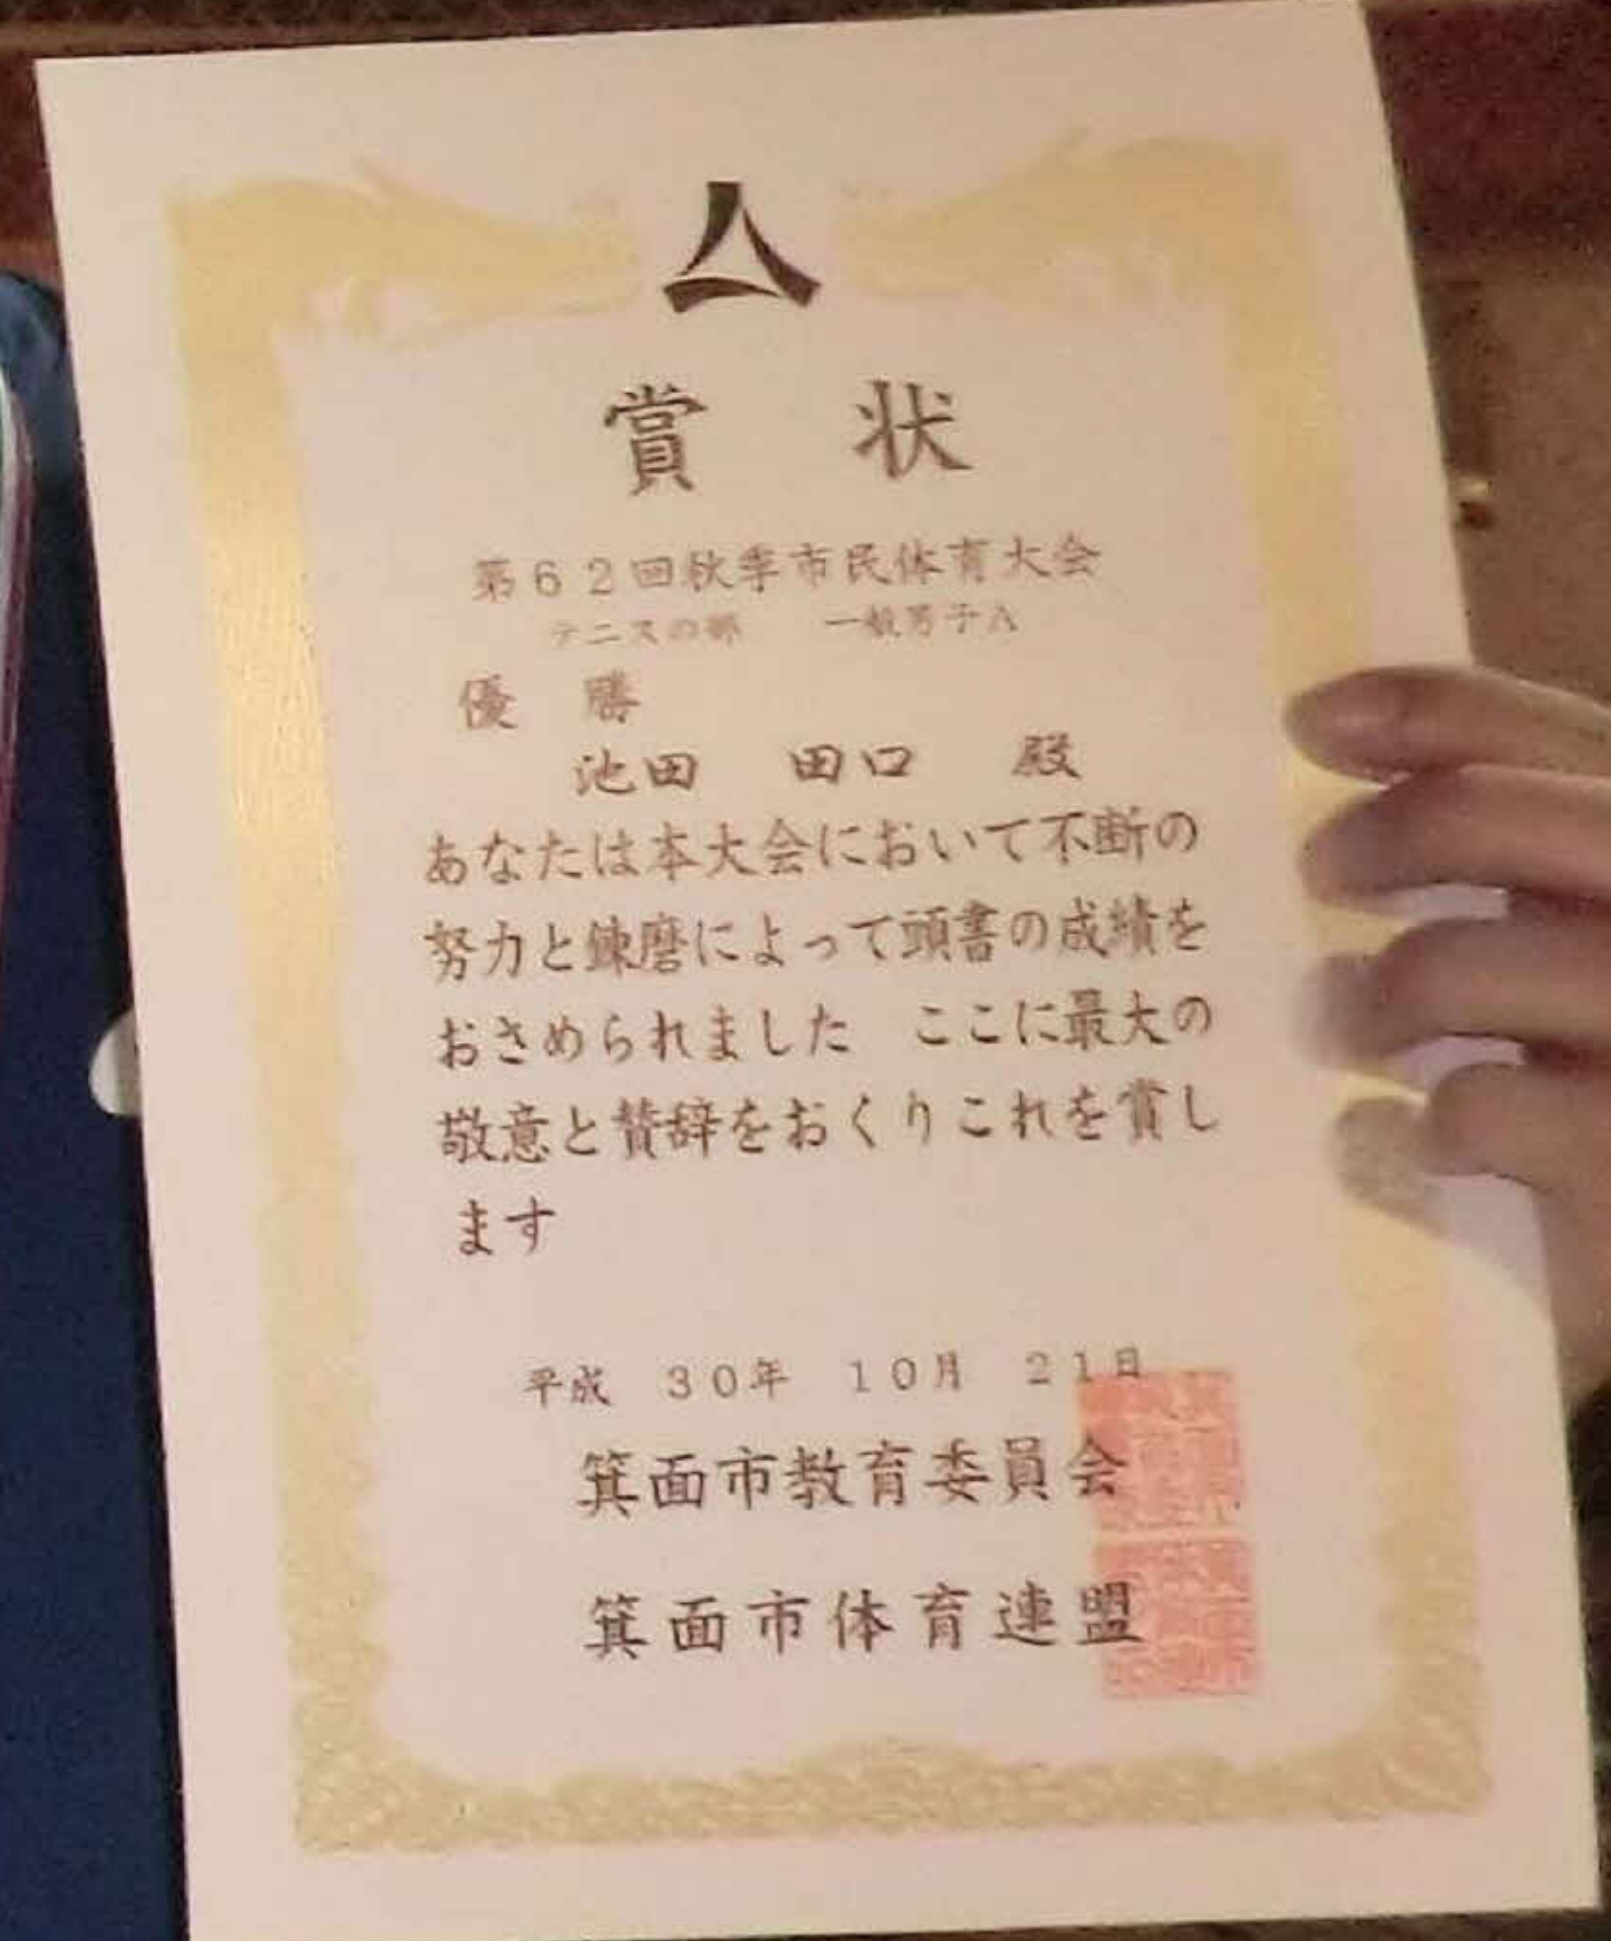 賞 状
第62回秋季市民体育大会
テニスの部 一般男子A
優 勝
池田 田口 殿
あなたは本大会において不断の
努力と錬磨によって頭書の成績を
おさめられました ここに最大の
敬意と賛辞をおくりこれを賞し
ます
平成 30年 10月 21日
箕面市教育委員会
箕面市体育連盟